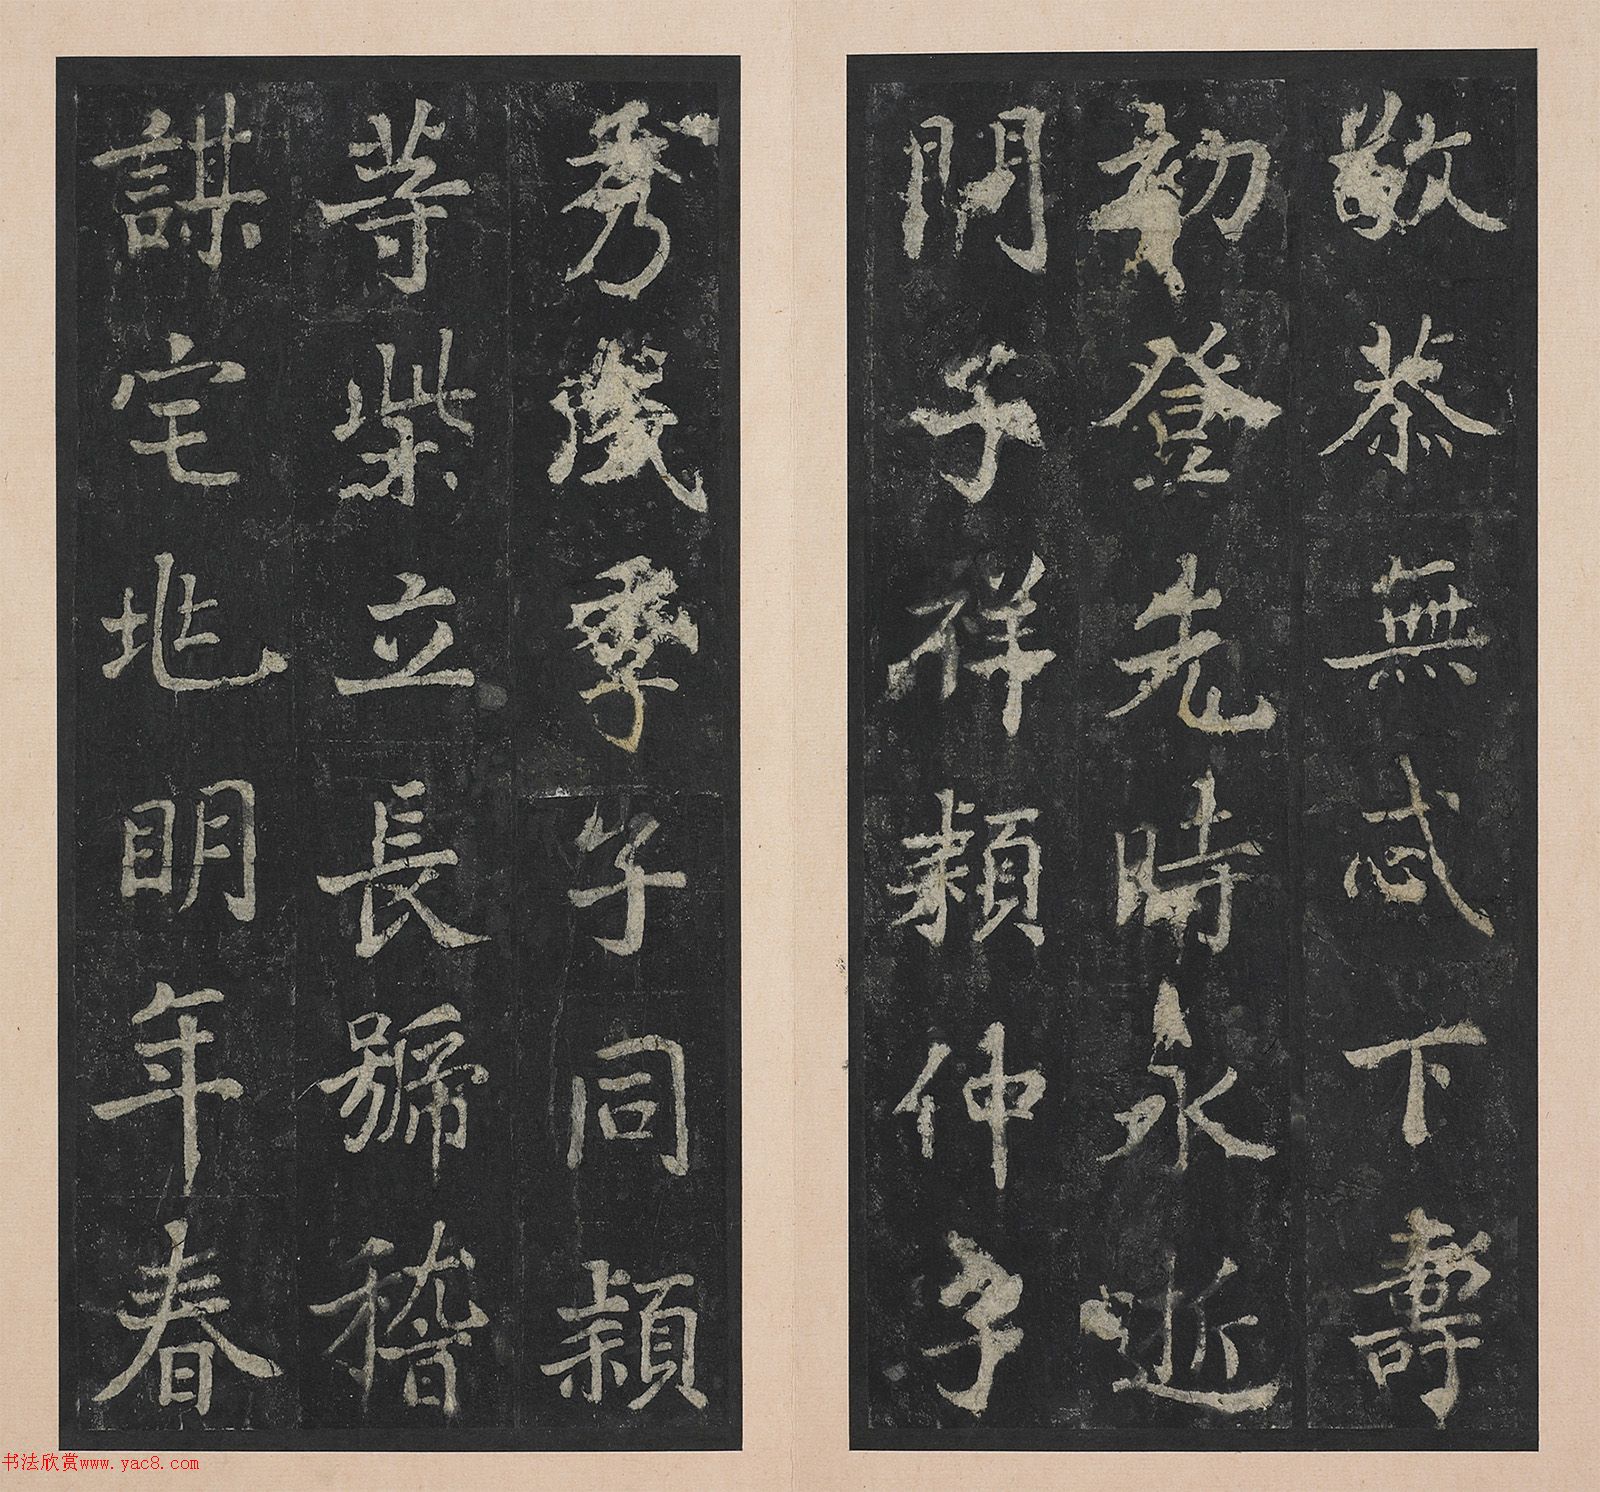 敬恭無忒下壽
初登先時永逝
門子祥頴仲子
秀淺季子同頴
等柴立長號稽
謀宅兆明年春
书法欣赏www.yac8.com